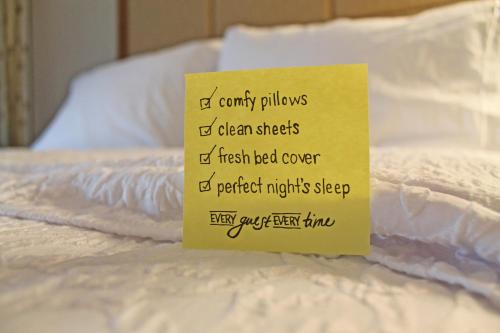 comfy pillows
clean sheets
fresh bed cover
perfect night's sleep
EVERY guest EVERY time